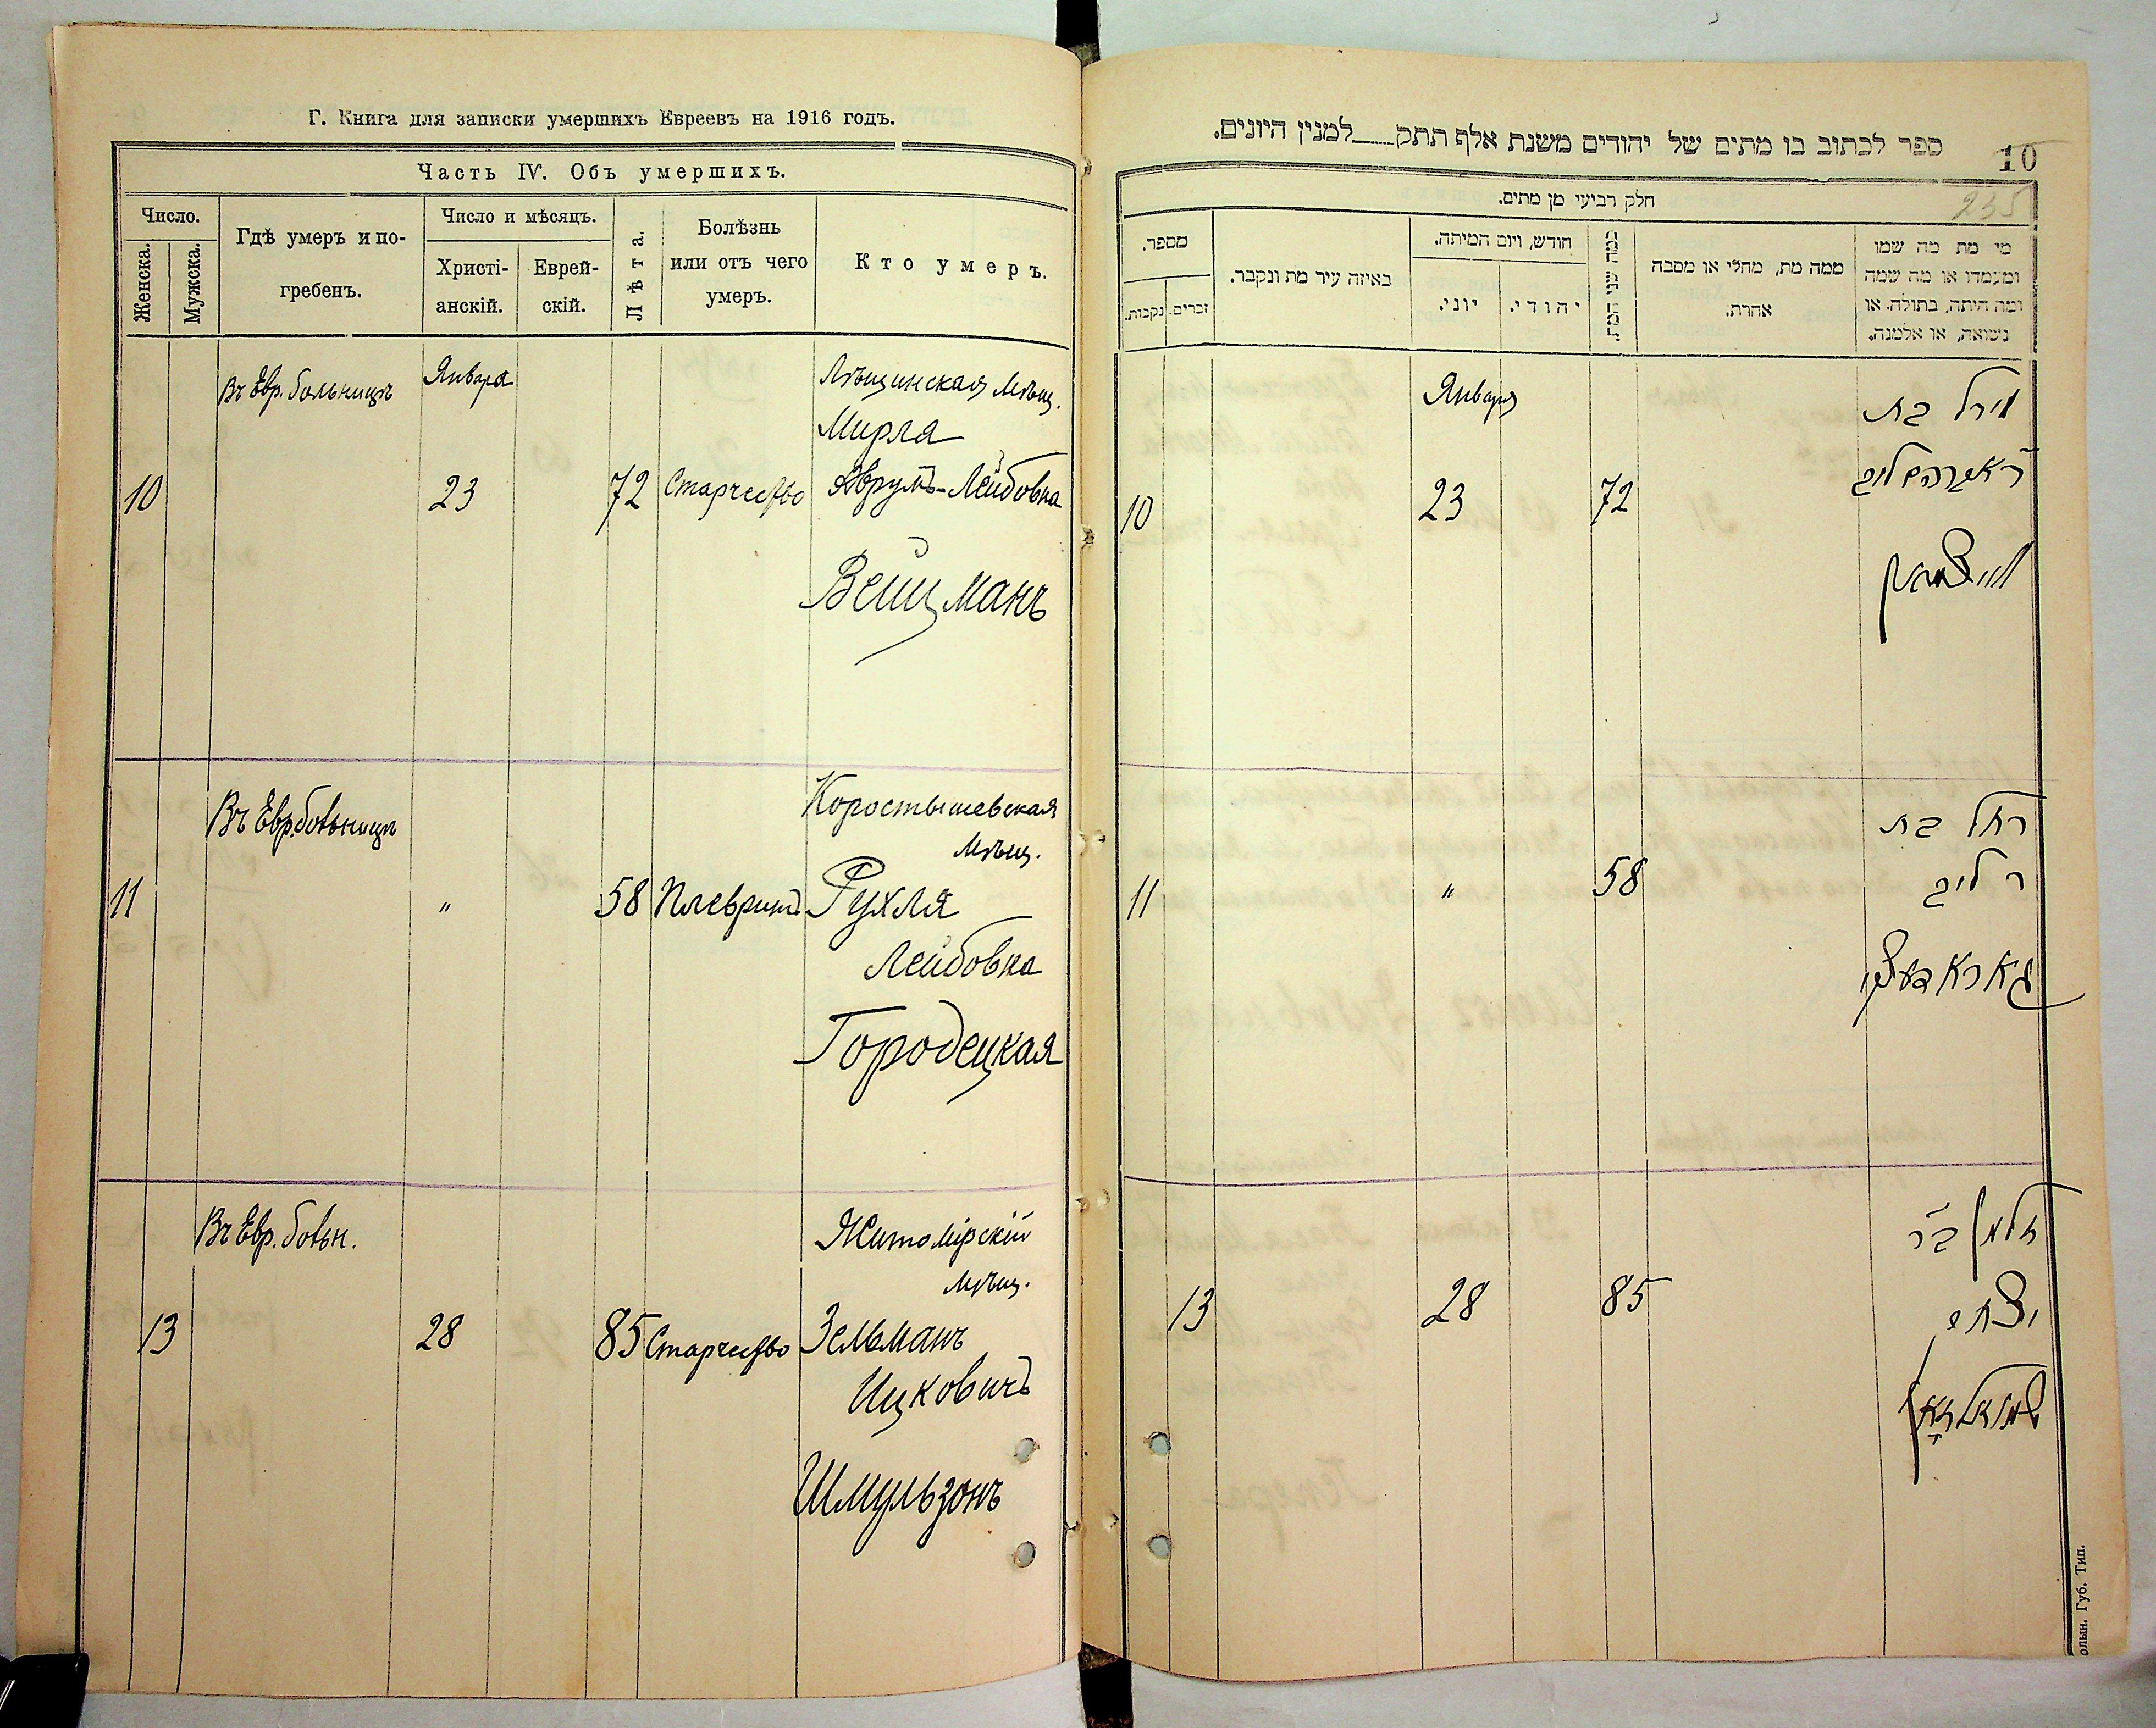 Г. Книга для записки умершихъ Евреевъ на 1916 годъ.
Часть IV. Объ умершихъ.
Число.
Женска.
Мужска.
Гдѣ умеръ и по-
гребенъ.
Число и мѣсяцъ.
Христі-
анскій.
Еврей-
скій.
Лѣта.
Болѣзнь
или отъ чего
умеръ.
Кто умеръ.
Въ Евр. больницѣ
Января
Мѣщ.
Мирля
10
23
72
Старчество
Аврумъ-Лейбовна
Вейцманъ
Въ Евр. больницѣ
Коростышевская
Мѣщ.
11
"
58
Плевритъ
Рухля
Лейбовна
Городецкая
Въ Евр. больн.
Житомірскій
мѣщ.
13
28
85
Старчество
Зельманъ
Ицковичъ
Шмульзонъ
ספר לכתוב בו מתים של יהודים משנת אלף תתק___למנין היונים.
10
235
חלק רביעי מן מתים.
מספר.
נקבות.
זכרים.
באיזה עיר מת ונקבר.
חודש, ויום המיתה.
יוני.
יהודי.
כמה שני המת
ממה מת, מחלי או מסבה
אחרת.
מי מת מה שמו
ומעמדו או מה שמה
ומה היתה, בתולה, או
נשואה, או אלמנה.
Января
מירל בת
ר' אברהם ליב
10
23
72
ווייצמאן
רחל בת
ר ליב
11
"
58
זלמן בר
יצחק
13
28
85
олын. Губ. Тип.